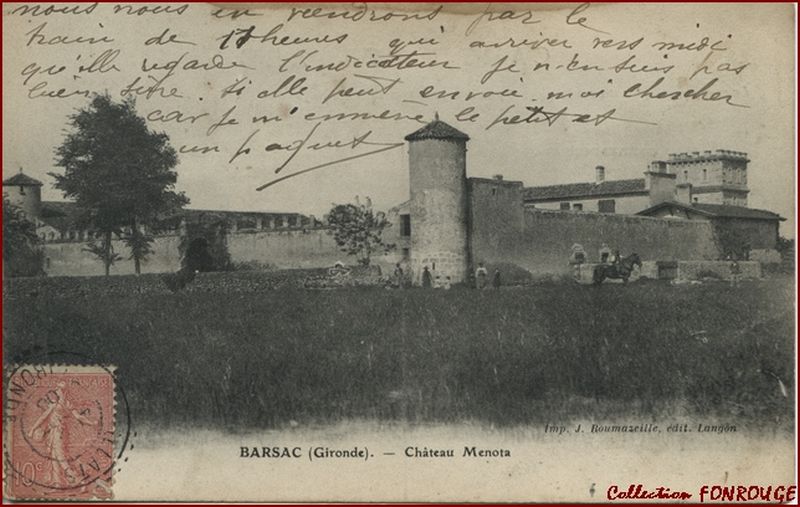 nous nous en viendrons par le
train de 17 heures qui arriver vers midi
qu'elle regarde l'indicateur je n'en suis pas
bien sûre. si elle peut envoie moi chercher
car je m'emmène le petit et
un paquet
BARSAC (Gironde). — Château Menota
Imp. J. Roumazeille, edit. Langon
10c
GIRONDE
Collection FONROUGE